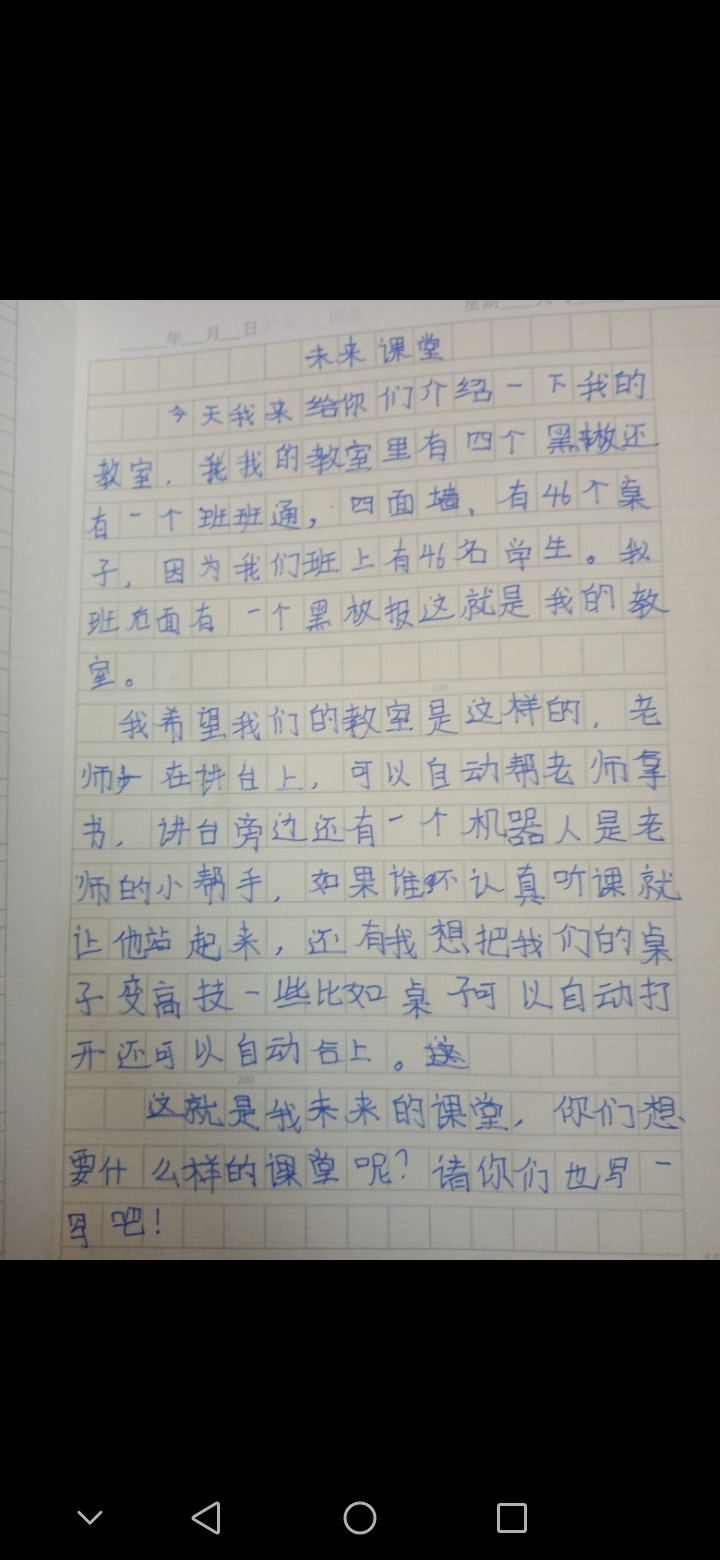 年 月 日
未来课堂
今天我来给你们介绍一下我的
教室，我的教室里有四个黑板还
有一个班班通，四面墙，有46个桌
子，因为我们班上有46名学生。我
班后面有一个黑板报这就是我的教
室。
我希望我们的教室是这样的，老
师 在讲台上，可以自动帮老师拿
书，讲台旁边还有一个机器人是老
师的小帮手，如果谁不认真听课就
让他站起来，还有我想把我们的桌
子变高技一些比如桌子可以自动打
开还可以自动合上。
200
这就是我未来的课堂，你们想
要什么样的课堂呢？请你们也写一
写吧！